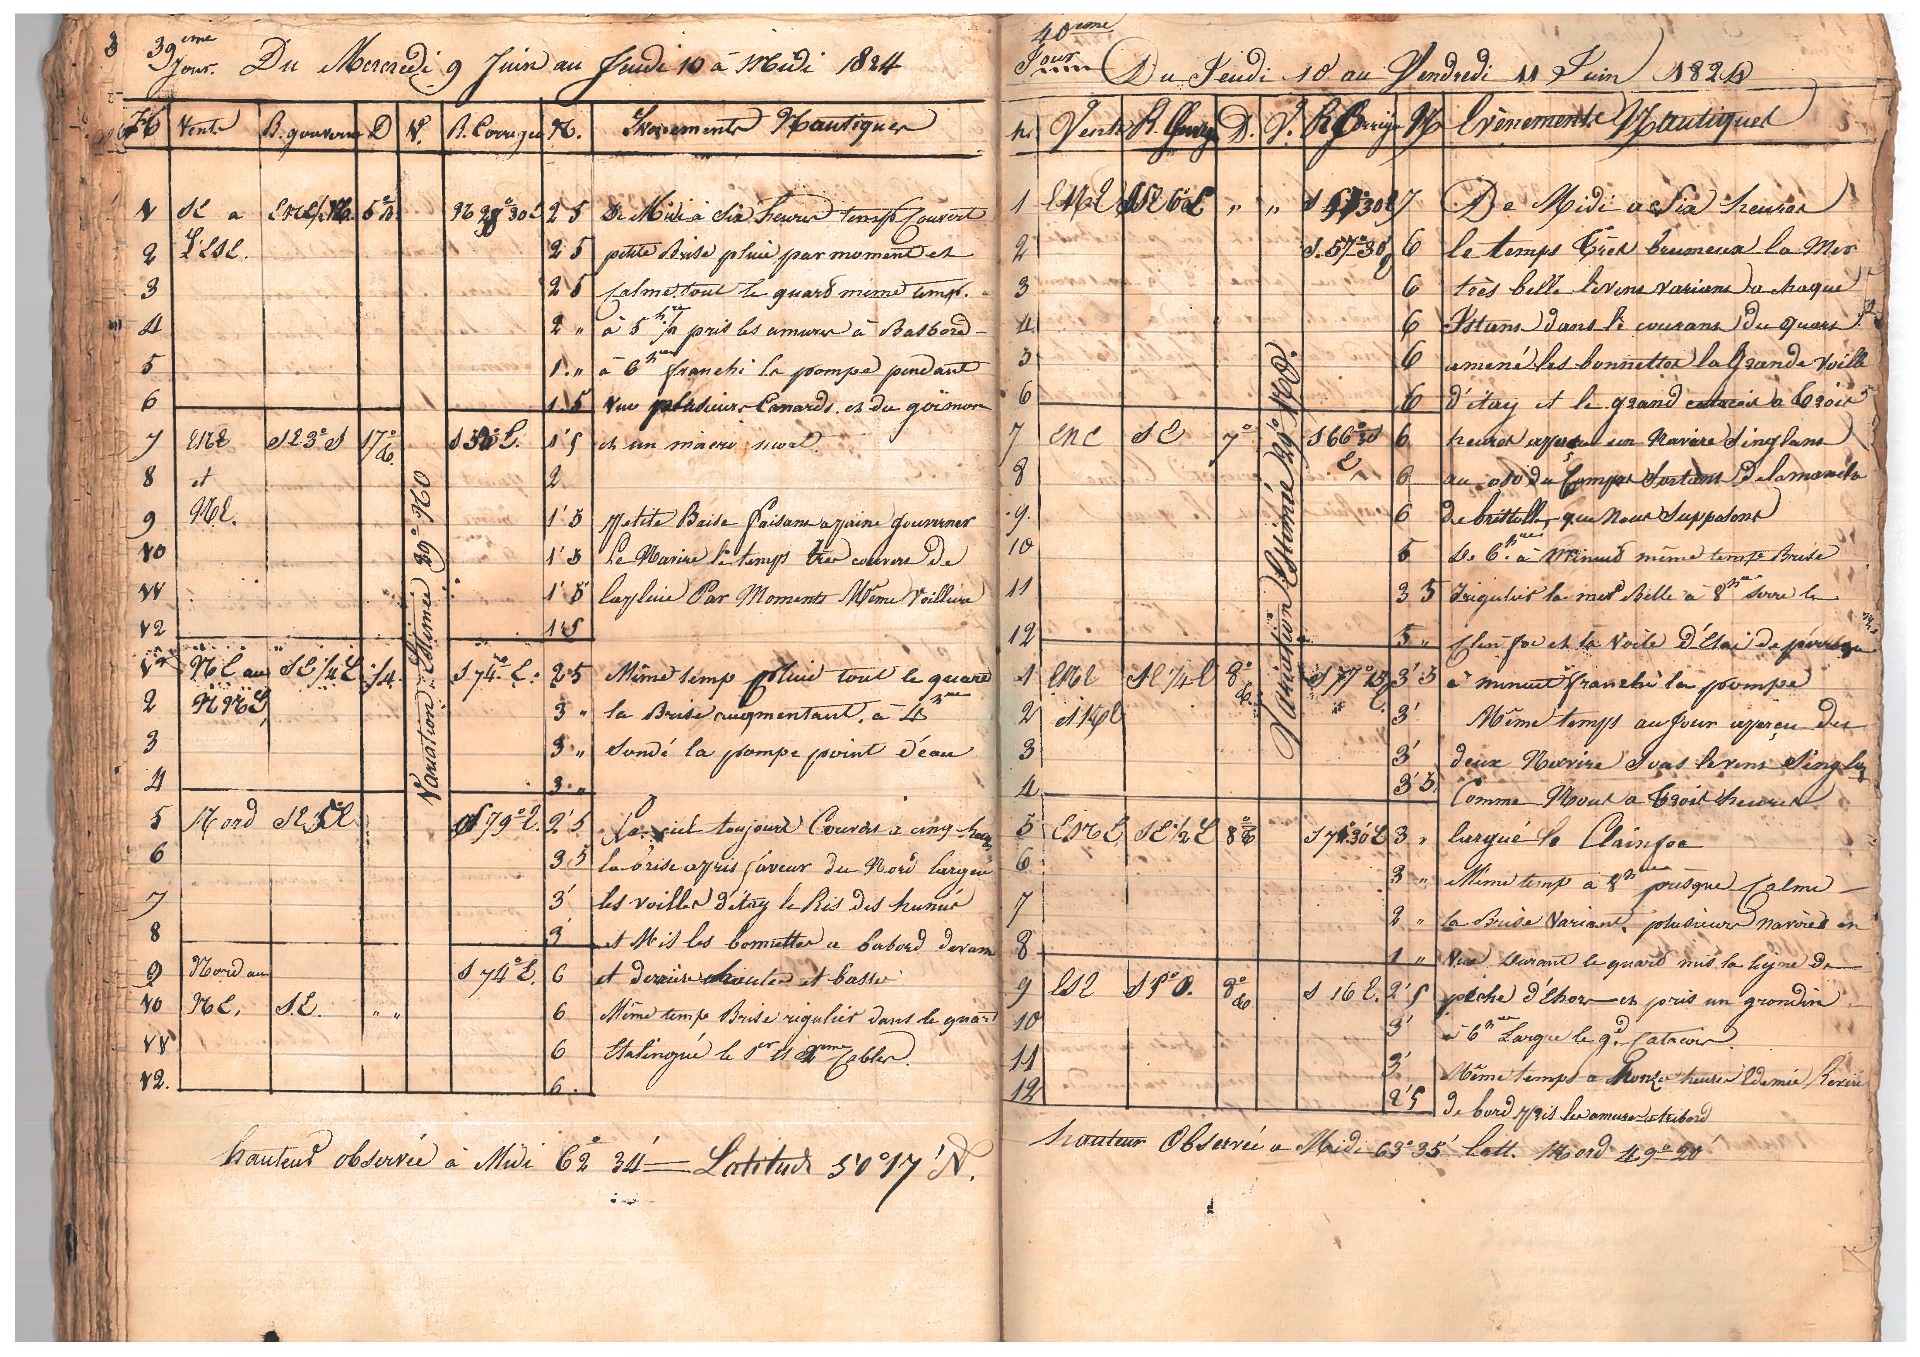 39eme Jour. Du Mercredi 9 Juin au Jeudi 10 à Midi 1824
H Vents R. gouverné D V. R. Corrigés N. Evenements Nautiques
1 SE a ENE/N. 5° N 28° 30 E 2 5 De Midi à Six heures temps Couvert
2 L'ESE. 2 5 petite Brise pluie par moment et
3 2 5 Calme tout le quard meme temp.
4 2 " à 5 h pris les amures à Basbord
5 1. " à 6 hres franchi la pompe pendant
6 1 5 vue plusieurs Canards et du goimon
7 ENE SE 3° S 17° S 32° E. 1' 5 et un
8 et 2
9 NE. 1' 5 Petite Brise faisans apaine gouverner
10 1' 5 Le Navire le temps tres couvers de
11 1' 5 la pluie Par Moments Même Voillure
12 1. 5
Variation Estimée 29° NO
1 NE au SE 1/4 E S 74° E. 2 5 Même temp pluie tout le quard
2 NNE 3 " la Brise augmentant. à 4 hres
3 3 " Sondé la pompe point d'eau
4 3 "
5 Nord SE 5° E S 79° E. 2' 5 Le ciel toujours Couvers a cinq heures
6 3 5 la brise apris faveur du Nord largué
7 3' les voilles d'étay le Ris des huniés
8 3' et Mis les bonnettes a babord devant
9 Nord au S 74° E. 6 et deriere hautes et basse
10 NE, SE. " " 6 Même temp Brise regulier dans le quard
11 6 Etalingué le 1er et 2eme Cables.
12. 6.
hauteur observée à Midi 62° 34' Latitude 50° 17' N.
40eme Jour Du Jeudi 10 au Vendredi 11 Juin 1824
h. Vents R. Gouvr D. V. R Corrigé N Evènements Nautiques
1 ENE SSE 6° E " " S 57° 30 E 7 De Midi a Six heures
2 S. 57° 30' 6 le temps très brumeux la Mer
3 6 très belle le vens varians a chaque
4 6 Istans dans le courans du quars
5 6 amené les bonnettes la Grande Voille
6 6 d'étay et le grand catacois a trois
7 ENE SE 7° S 66° 30 E 6 heures apercu un Navire Singlans
8 6 au OSO du Compas Sortans de la manche
9 6 de bristolle, que Nous Supposons
10 5 De 6 hres à Minuit même temp Brise
11 3 5 Iregulier la mer Belle à 8 hres serre le
12 5 " Clin foc et la voile d'Etai de
Variation Estimée 29° NO.
1 ENE SE 1/4 E 8° S 77° 15 E 3' 5 à minuit franchi la pompe
2 3' Même temps au Jour aperçu des
3 3' deux Navire Sous le vens
4 3' 5 Comme Nous a trois heures
5 ENE SE 1/2 E 8° S 30' E 3 " largué le Clainfoc
6 3 " Même temp a 8 hres presque Calme
7 2 " la Brise Variant, plusieur navires en
8 1 " Vue Durant le quard mis la ligne de
9 ESE S 1° O. 8° S 16 E. 2' 5 peche d'Ehor et pris un grondin
10 3' à 6 hres Largue le gd. Catacois.
11 3' Même temps a honze heures Edemie
12 2' 5 de bord Pris les amures atribord
hauteur Observée a Midi 63° 35' Latt. Nord 49° 20'